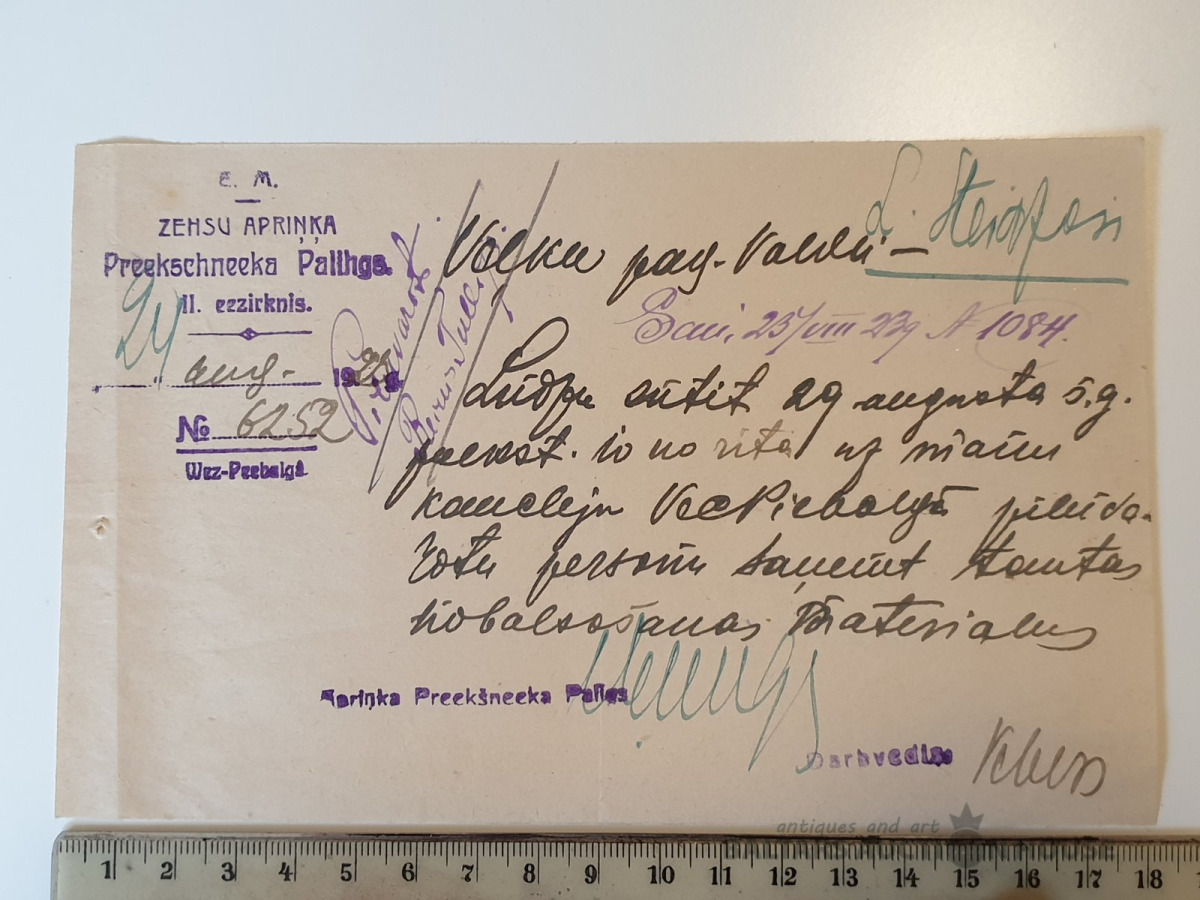 E. M.
ZEHSU APRIŅĶA
Preekschneeka Palihgs.
II. eezirknis.
24
aug. 1923 g.
№ 6252
Wez-Peebalgā
pag. Valdei –
Saņ. 25/VIII 23g № 1084.
Lūdzu sūtit 29 augusta š.g.
pulkst. 10 no rita uz manu
kanceleju VecPiebalgā pilnva-
rotu personu saņemt tautas
nobalsošanas materialus
Apriņķa Preekšneeka Palīgs
Darbvedis
antiques and art
1 2 3 4 5 6 7 8 9 10 11 12 13 14 15 16 17 18